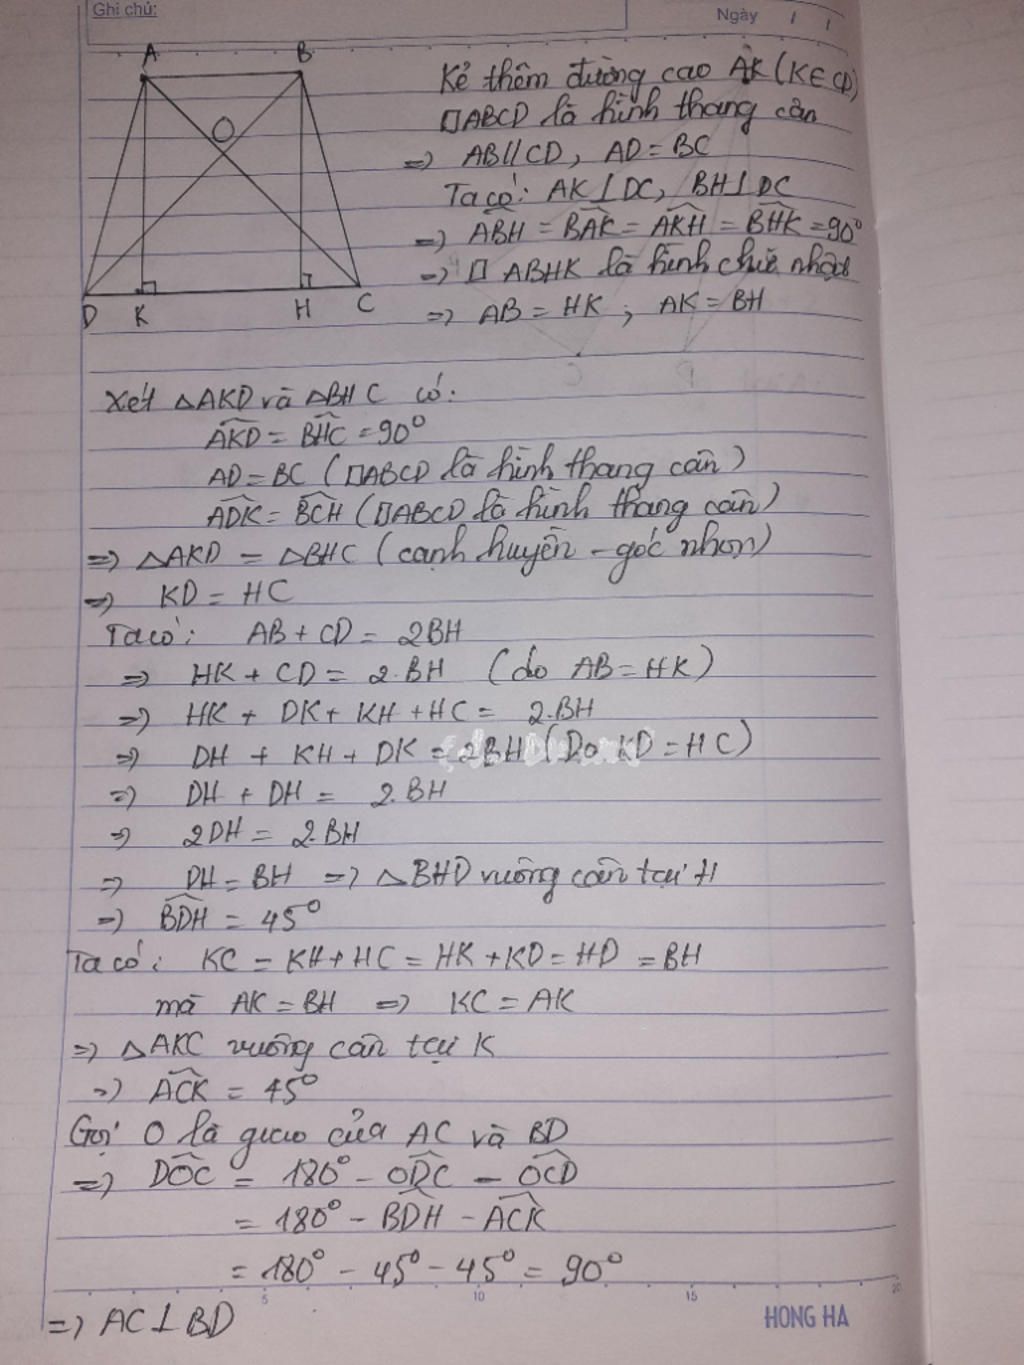 Ghi chú:
Ngày / /
A B
O
D K H C
Kẻ thêm đường cao AK (K∈CD)
□ABCD là hình thang cân
=> AB//CD, AD = BC
Ta có: AK⊥DC, BH⊥DC
=> \widehat{ABH} = \widehat{BAK} = \widehat{AKH} = \widehat{BHK} = 90°
=> □ ABHK là hình chữ nhật
=> AB = HK ; AK = BH
Xét △AKD và △BHC có:
\widehat{AKD} = \widehat{BHC} = 90°
AD = BC (□ABCD là hình thang cân)
\widehat{ADK} = \widehat{BCH} (□ABCD là hình thang cân)
=> △AKD = △BHC (cạnh huyền - góc nhọn)
=> KD = HC
Ta có: AB + CD = 2BH
=> HK + CD = 2.BH (do AB = HK)
=> HK + DK + KH + HC = 2.BH
=> DH + KH + DK = 2BH (Do KD = HC)
=> DH + DH = 2.BH
=> 2DH = 2.BH
=> DH = BH => △BHD vuông cân tại H
=> \widehat{BDH} = 45°
Ta có: KC = KH + HC = HK + KD = HD = BH
mà AK = BH => KC = AK
=> △AKC vuông cân tại K
=> \widehat{ACK} = 45°
Gọi O là giao của AC và BD
=> \widehat{DOC} = 180° - \widehat{ODC} - \widehat{OCD}
= 180° - \widehat{BDH} - \widehat{ACK}
= 180° - 45° - 45° = 90°
5 10 15 20
=> AC⊥BD
HONG HA